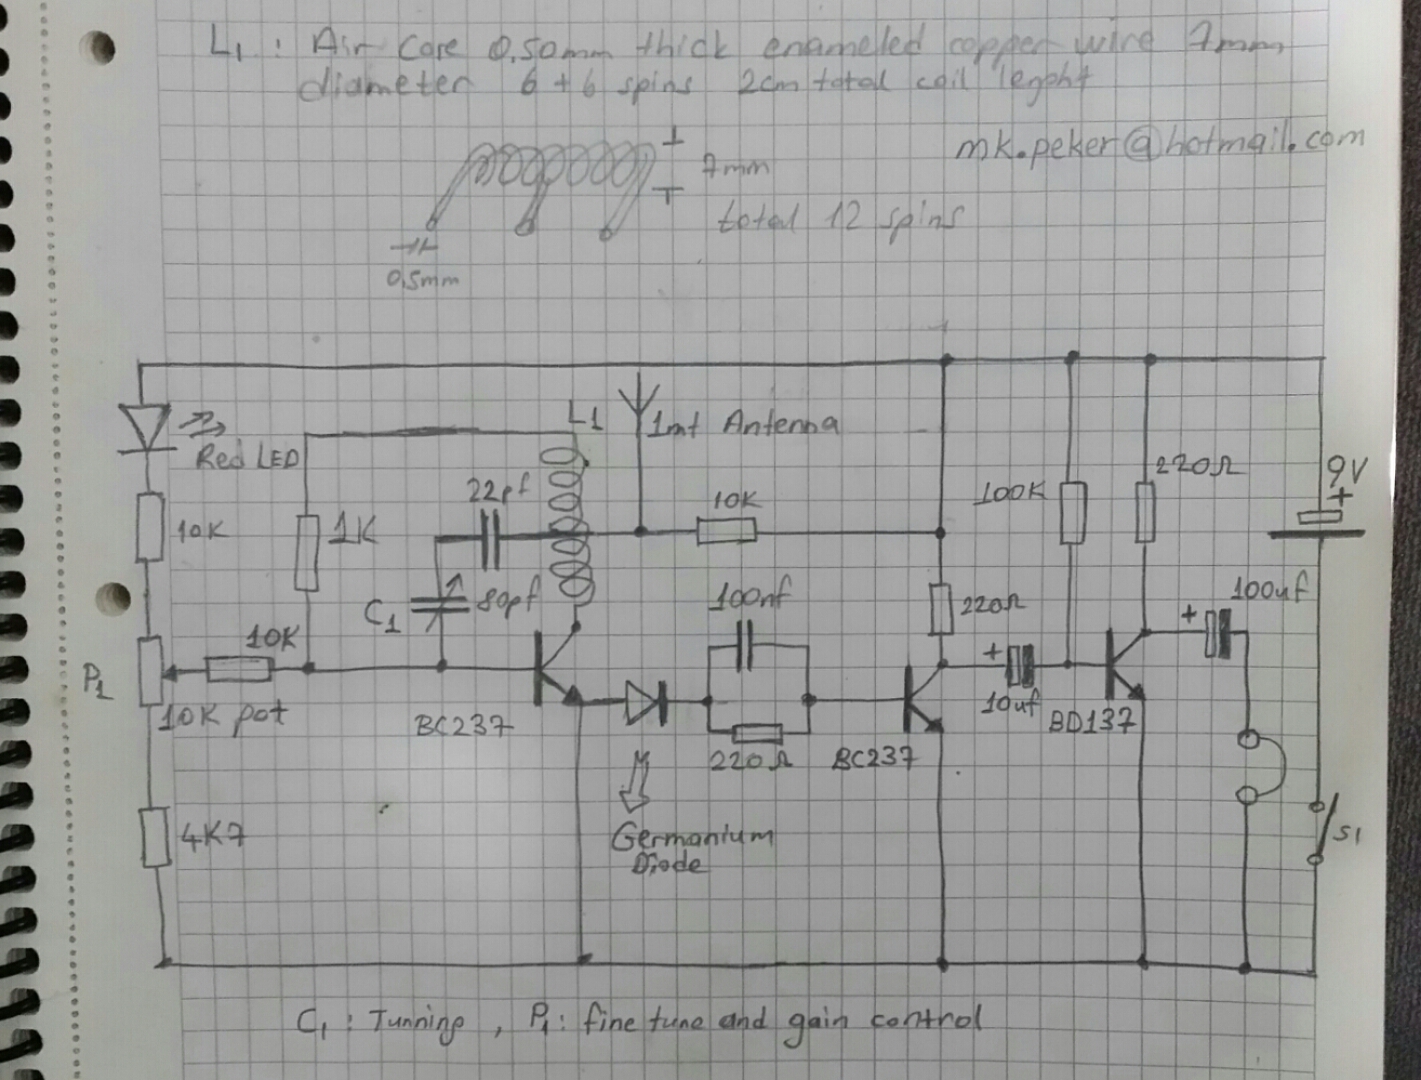 L1 : Air Core 0,50mm thick enameled copper wire 7mm
diameter 6+6 spins 2cm total coil leght
mk.peker@hotmail.com
7mm
total 12 spins
0,5mm
L1
1mt Antenna
Red LED
22pf
10K
1K
10K
100K
220Ω
9V
+
C1
80pf
100nf
220Ω
100uf
+
10K
P1
10K pot
BC237
220Ω
BC237
+
10uf
BD137
4K7
Germanium
Diode
S1
C1 : Tunning , P1 : fine tune and gain control